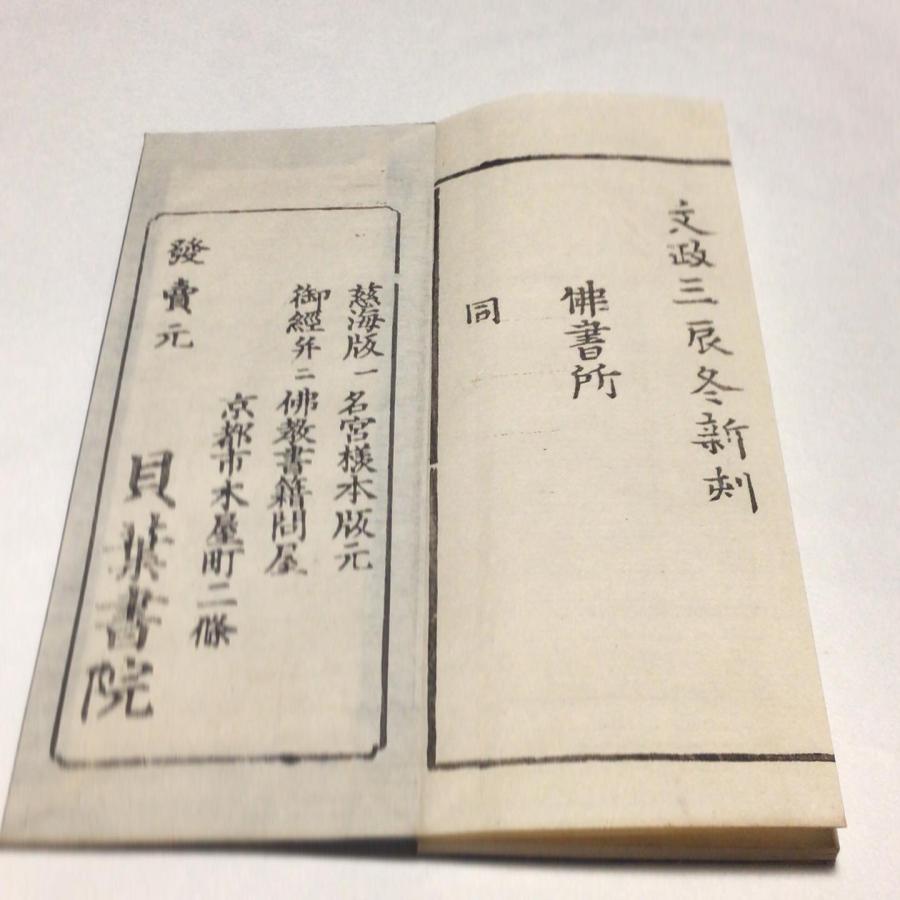 文政三辰冬新刻
佛書所
同
慈海版一名宮様本版元
御經并ニ佛教書籍問屋
京都市木屋町二條
發賣元
貝葉書院